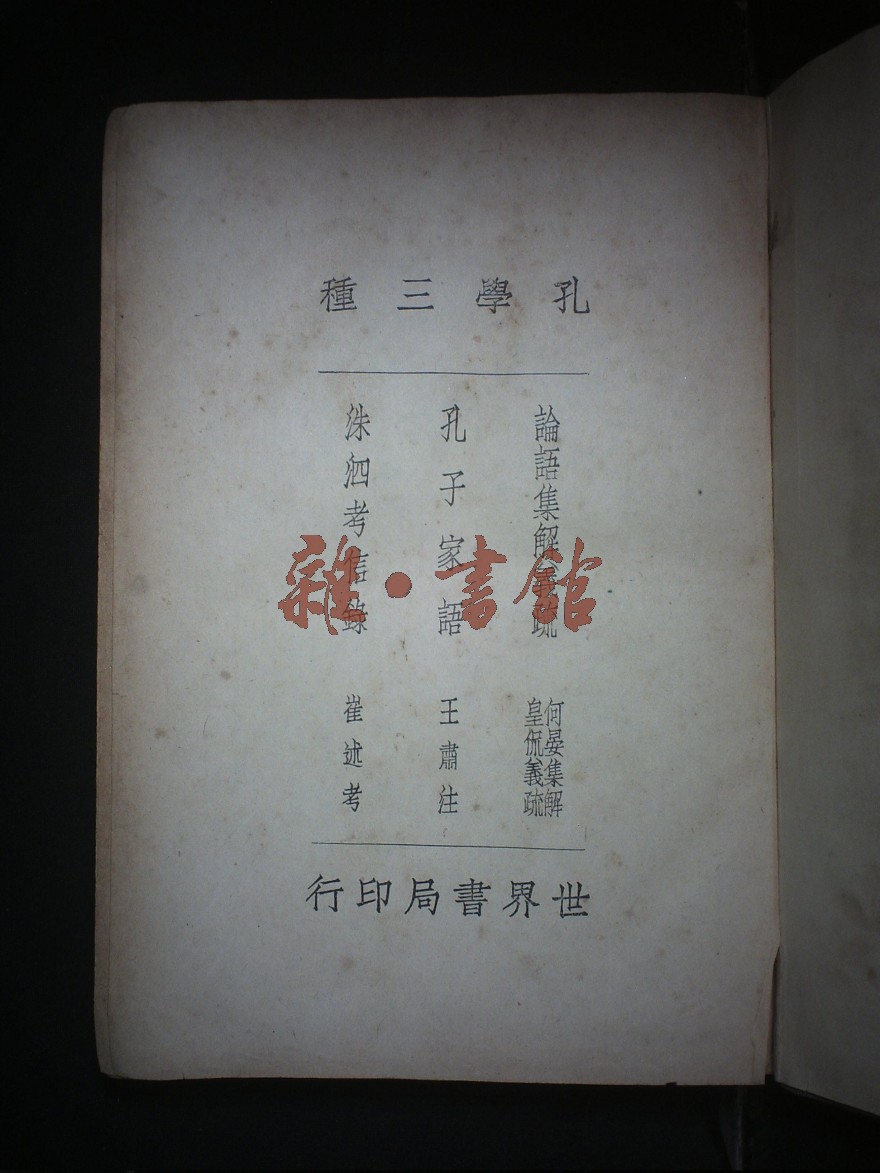 孔學三種
論語集解義疏
何晏集解
皇侃義疏
孔子家語
王肅注
洙泗考信錄
崔述考
世界書局印行
雜·書館